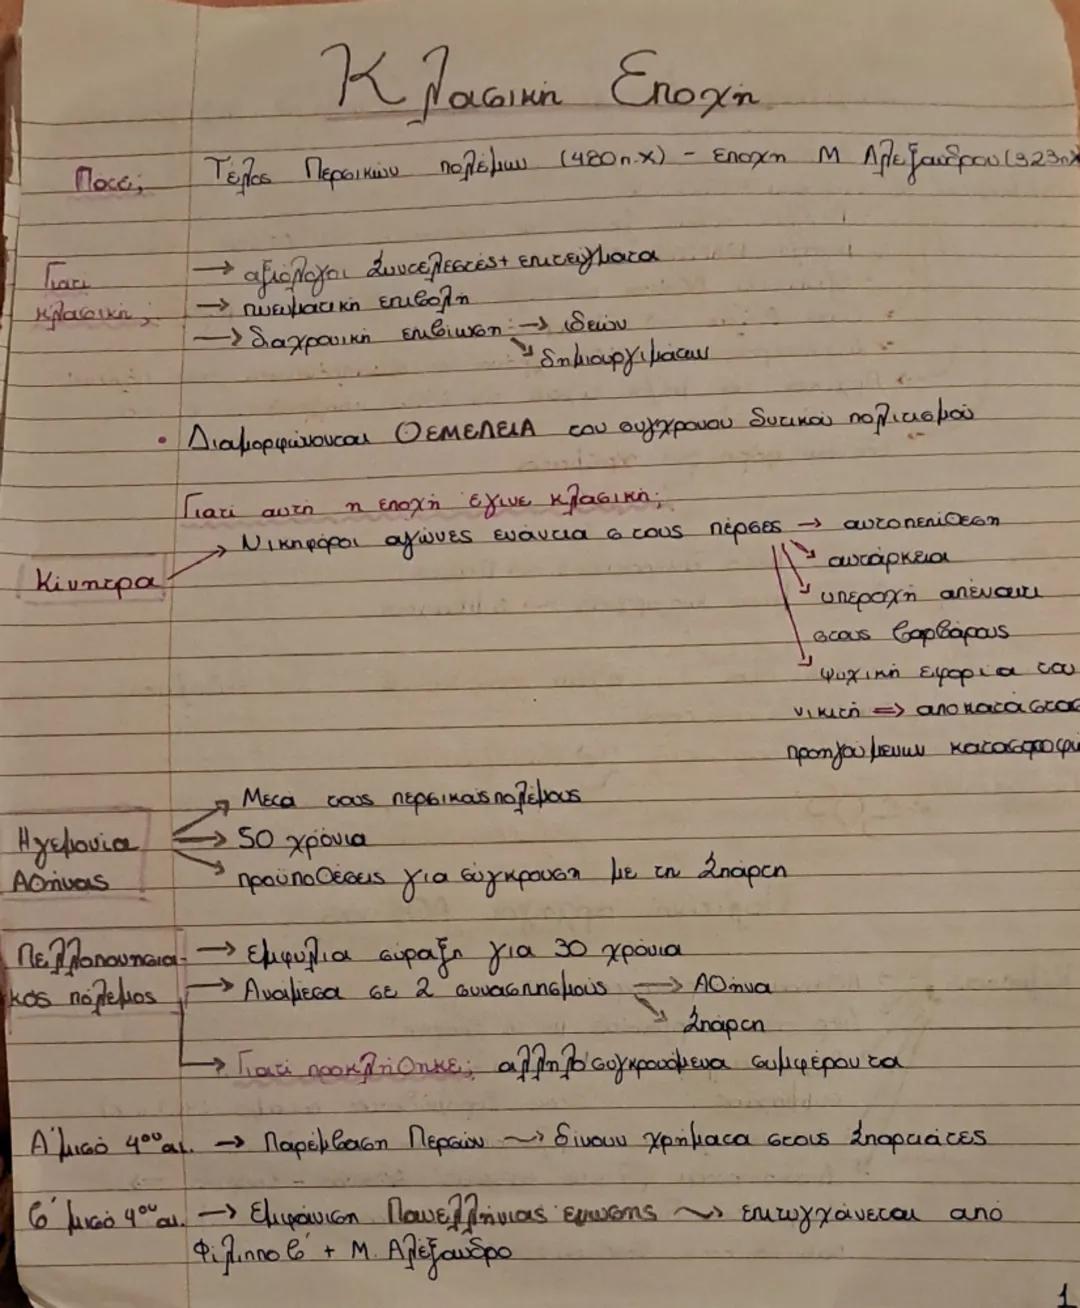 Κλασικη Εποχη
Ποτε; Τέλος Περσικών πολέμων (480π.Χ) - εποχη Μ Αλεξανδρου (323πΧ
Γιατι → αξιόλογοι Συντελεστές + επιτεύγματα
κλασικη; → πνευματικη επιβολη
→ διαχρονικη επιβιωση → ιδεών
↘ δημιουργιμάτων
• Διαμορφώνονται ΘΕΜΕΛΕΙΑ του συγχρονου δυτικού πολιτισμού
Γιατι αυτη η εποχη έγινε κλασικη;
Κίνητρα → Νικηφόροι αγώνες ενάντια στους πέρσες → αυτοπεπίθεση
αυτάρκεια
υπεροχη απέναντι
στους βαρβάρους
ψυχικη εφορία του
νικιτη ⇒ αποκατάστασ
προηγούμενων καταστροφώ
Μετα τους περσικους πολέμους
Ηγεμονία → 50 χρόνια
Αθήνας προϋποθέσεις για σύγκρουση με τη Σπάρτη
Πελλοπουνησια- → εμφύλια σύραξη για 30 χρόνια
κός πόλεμος → Ανάμεσα σε 2 συνασπησμούς → Αθηνα
↘ Σπάρτη
→ Γιατί προκλήθηκε; αλληλοσυγκρουόμενα συμφέροντα
Α' μισό 4ου αι. → Παρέμβαση Περσών ~> δίνουν χρήματα στους Σπαρτιάτες
β' μισό 4ου αι. → Εμφάνιση Πανελλήνιας ένωσης ~> επιτυγχάνεται από
Φίλιππο β' + Μ. Αλέξανδρο
1